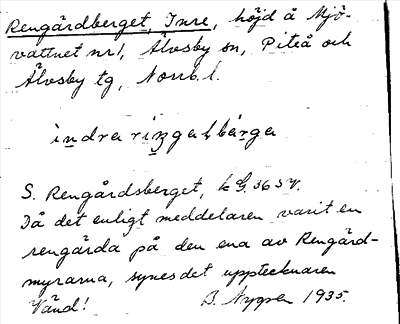 Rengårdberget, Inre, höjd å Mjö-
vattnet nr 1, Älvsby sn, Piteå och
Älvsby tg, Norrb. l.
S. Rengårdsberget, k G. 36 S V.
Då det enligt meddelaren varit en
rengärda på den ena av Rengård-
myrarna, synes det upptecknaren
Vänd! B. Nygren 1935.